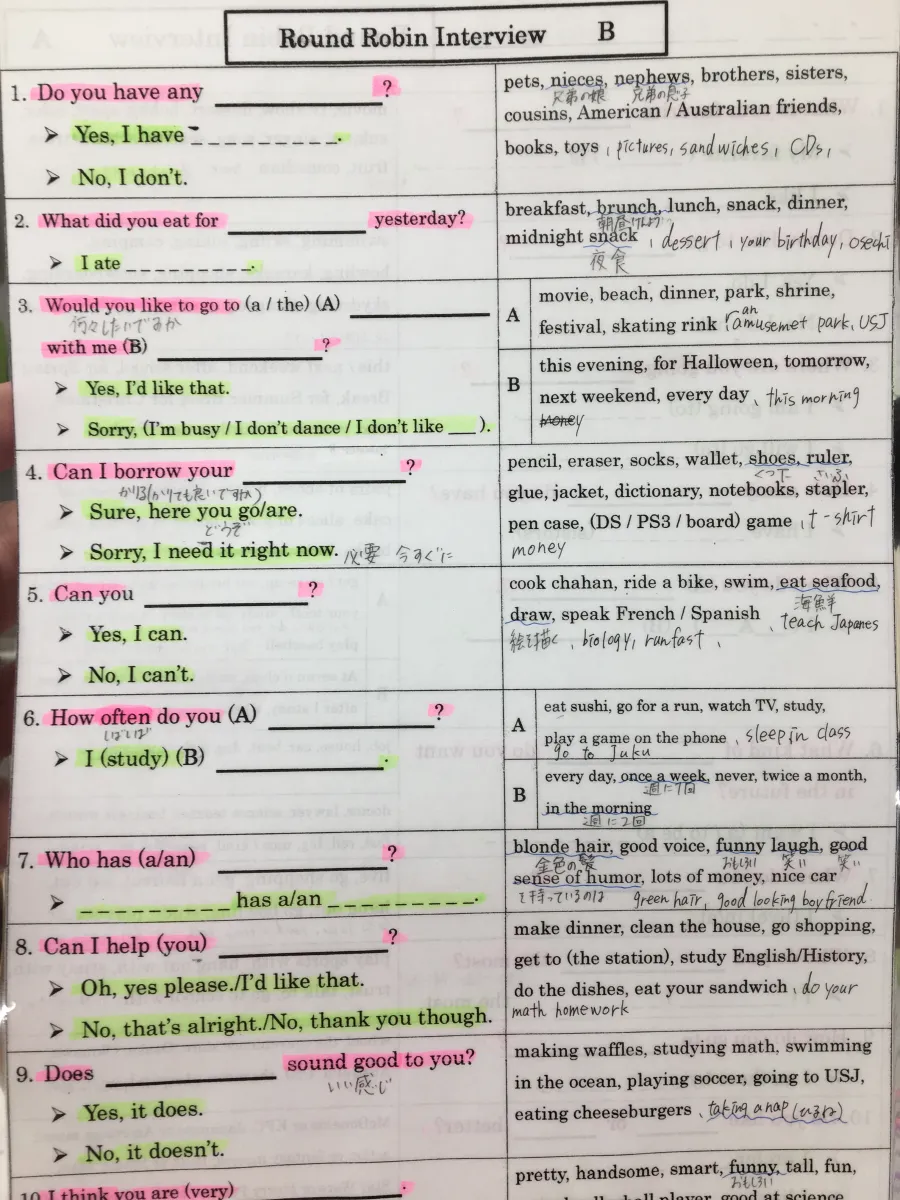 Round Robin Interview B
1. Do you have any ____________ ?
➤ Yes, I have _ _ _ _ _ _ _ _ _ _.
➤ No, I don't.
pets, nieces, nephews, brothers, sisters,
兄弟の娘 兄弟の息子
cousins, American / Australian friends,
books, toys, pictures, sandwiches, CDs,
2. What did you eat for ____________ yesterday?
➤ I ate ____________.
breakfast, brunch, lunch, snack, dinner,
midnight snack, dessert, your birthday, osechi
夜食
3. Would you like to go to (a / the) (A) ____________
何々したいですか
with me (B) ____________ ?
➤ Yes, I'd like that.
➤ Sorry, (I'm busy / I don't dance / I don't like ___ ).
A
movie, beach, dinner, park, shrine,
festival, skating rink, an amusemet park, USJ
B
this evening, for Halloween, tomorrow,
next weekend, every day, this morning
money
4. Can I borrow your ____________ ?
かりる(かりても良いですか)
➤ Sure, here you go/are.
どうぞ
➤ Sorry, I need it right now. 必要 今すぐに
pencil, eraser, socks, wallet, shoes, ruler,
くつ下 さいふ
glue, jacket, dictionary, notebooks, stapler,
pen case, (DS / PS3 / board) game, t-shirt
money
5. Can you ____________ ?
➤ Yes, I can.
➤ No, I can't.
cook chahan, ride a bike, swim, eat seafood,
海鮮
draw, speak French / Spanish, teach Japanes
絵を描く, biology, run fast,
6. How often do you (A) ____________ ?
しばしば
➤ I (study) (B) ____________.
A
eat sushi, go for a run, watch TV, study,
play a game on the phone, sleep in class
go to juku
B
every day, once a week, never, twice a month,
週に1回
in the morning
週に2回
7. Who has (a/an) ____________ ?
➤ _ _ _ _ _ _ _ _ _ has a/an _ _ _ _ _ _ _ _ _.
blonde hair, good voice, funny laugh, good
金色の髪 おもしろい 笑い 笑い
sense of humor, lots of money, nice car
を持っているのは green hair, good looking boyfriend
8. Can I help (you) ____________ ?
➤ Oh, yes please./I'd like that.
➤ No, that's alright./No, thank you though.
make dinner, clean the house, go shopping,
get to (the station), study English/History,
do the dishes, eat your sandwich, do your
math homework
9. Does ____________ sound good to you?
いい感じ
➤ Yes, it does.
➤ No, it doesn't.
making waffles, studying math, swimming
in the ocean, playing soccer, going to USJ,
eating cheeseburgers, taking a nap (ひるね)
10. I think you are (very) ____________.
pretty, handsome, smart, funny, tall, fun,
おもしろい
ball player, good at science